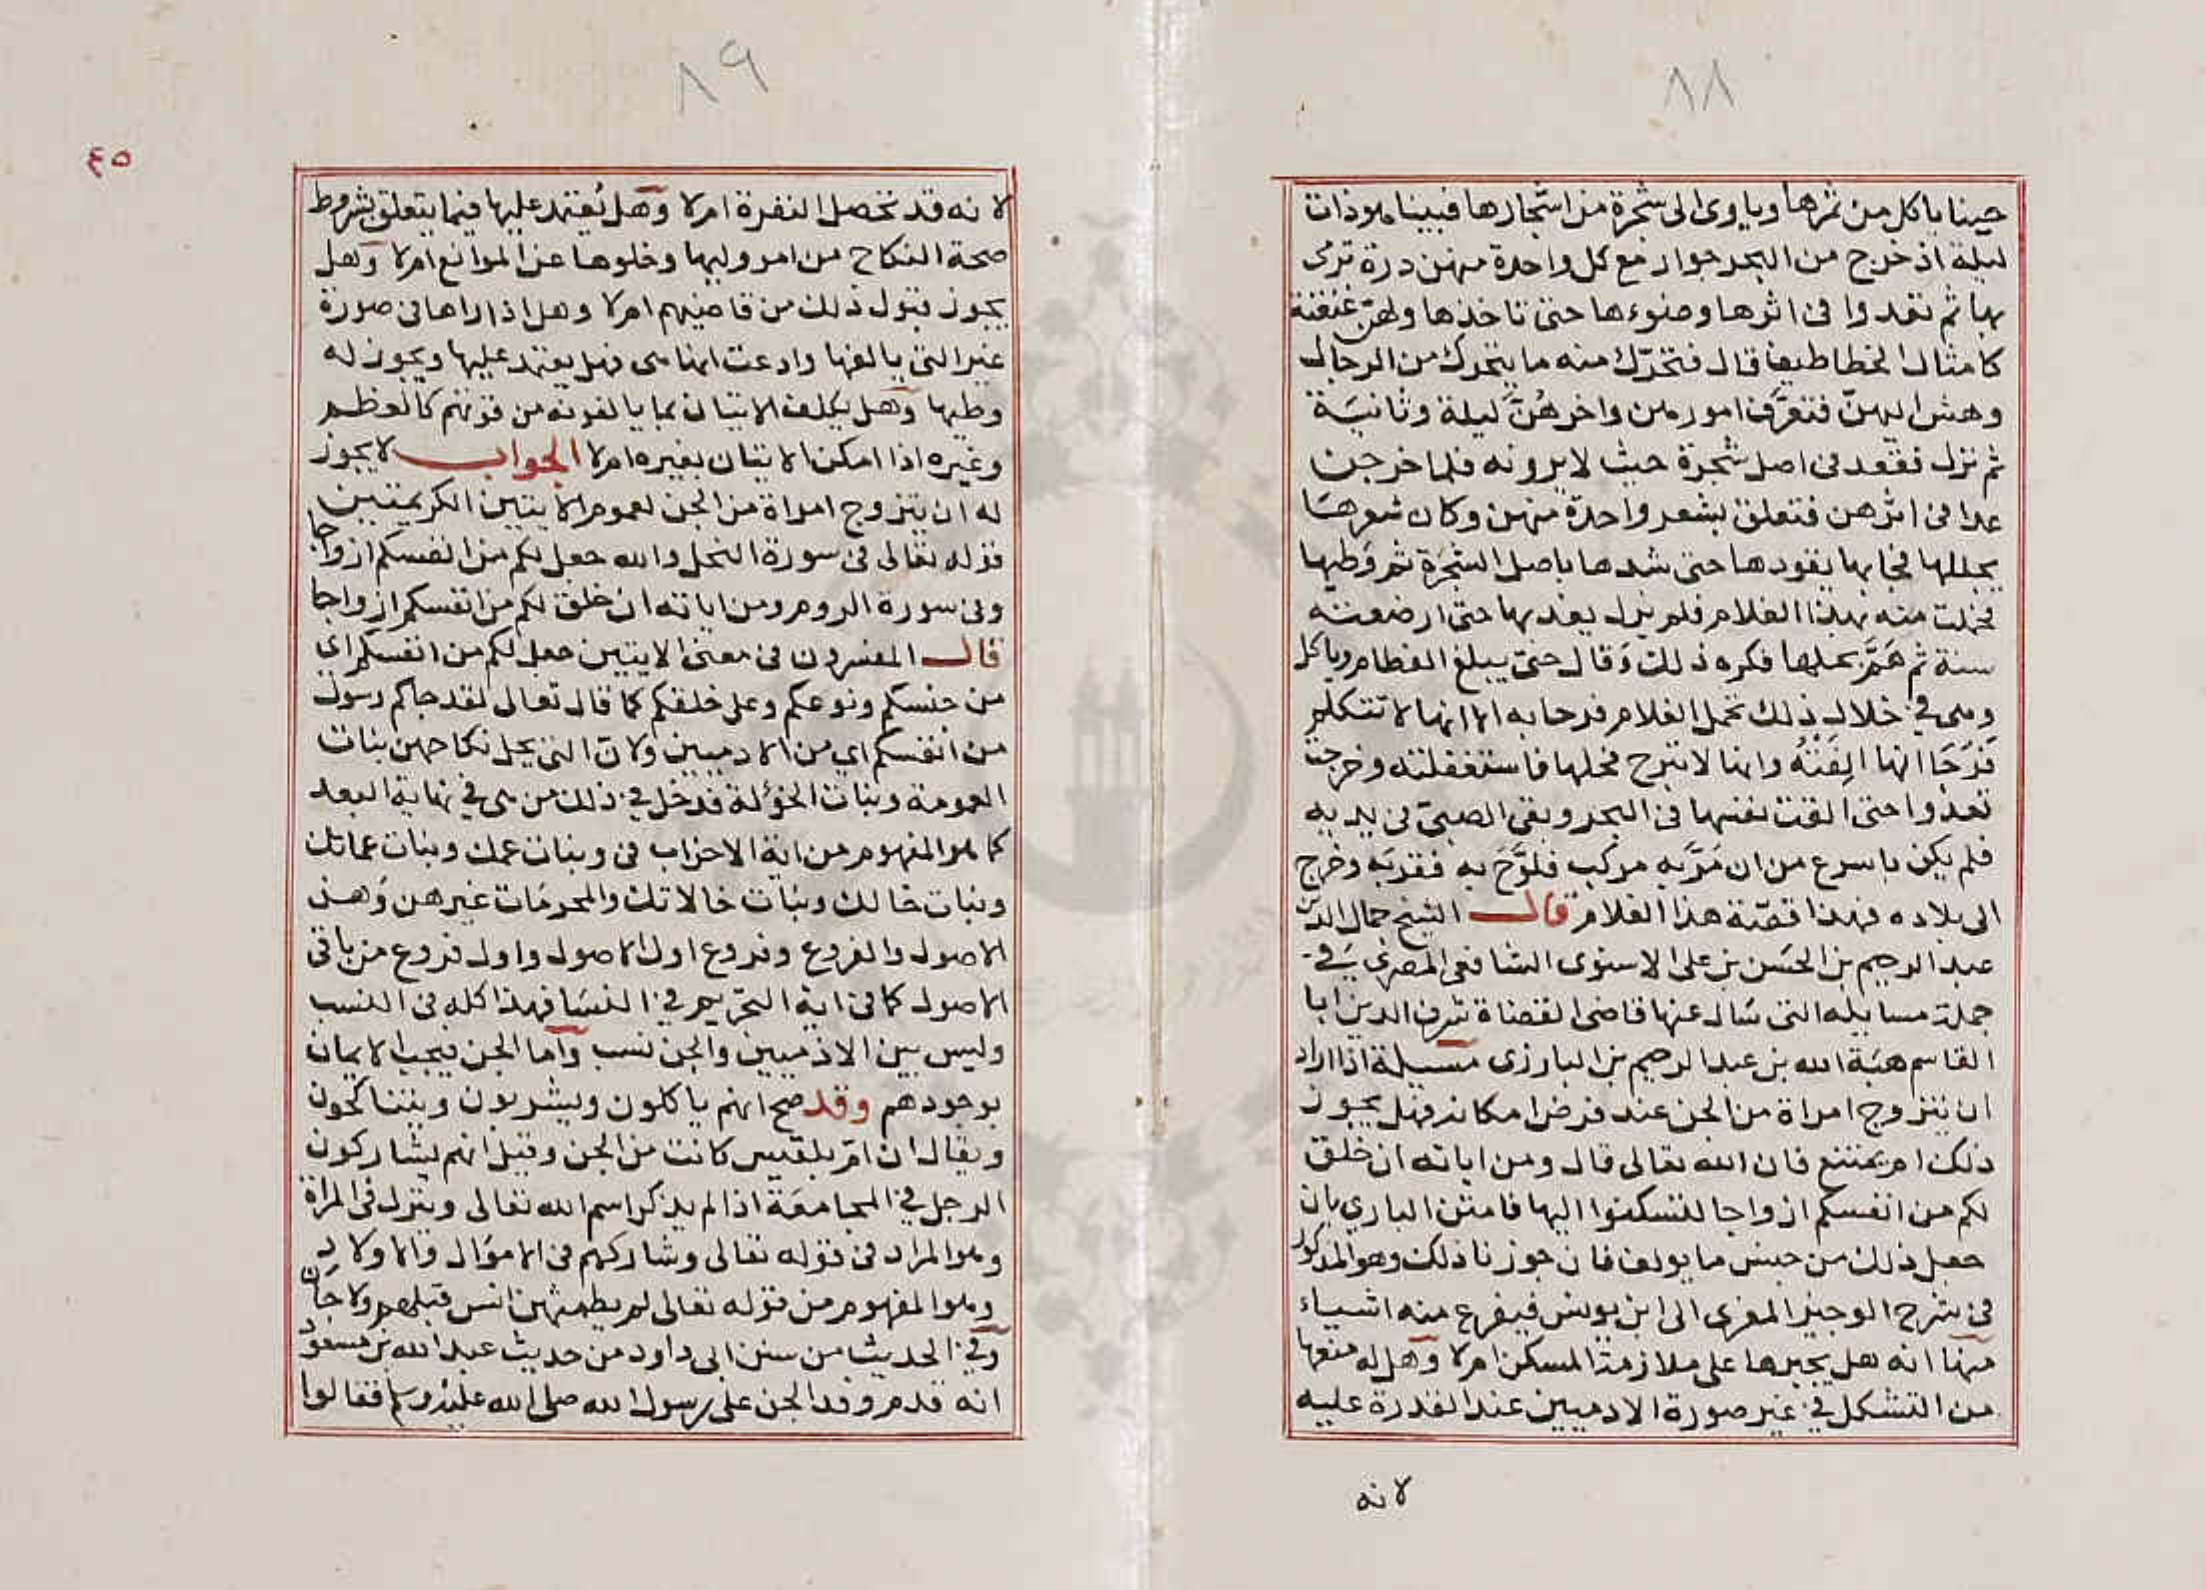 ٨٨
حينا ياكل من ثمرها وياوى الى شجرة من اشجارها فبينا هو ذات
ليلة اذ خرج من البحر جوار مع كل واحدة منهن درة ترى
بها ثم تعدوا فى اثرها وضوءها حتى تاخذها ولهن غنغنة
كامثال الخطاطيف قال فتحرّك منه ما يتحرك من الرجال
وهش اليهنّ فتعرَّف امورهن واخرهُنّ ليلة وثانيَة
ثم نزل فقعد فى اصل شجرة حيث لا يرونه فلما خرجن
عدا فى اثرهن فتعلق بشعر واحدة منهن وكان شعرهَا
يجللها فجابها يقودها حتى شدها باصل الشجَرة ثم وَطيها
فحملت منه بهذا الغلام فلم يزل يعذبها حتى ارضعته
سنة ثم هَمَّ بحلها فكره ذلك وَقال حتى يبلغ الفطام وياكل
وهى في خلال ذلك تحمل الغلام فرحا به الا انها لا تتكلم
فَرَجَا انها اَلِفَتْهُ وانها لا تبرح فحلها فاستغفلته وخرجت
تعدوا حتى القت نفسها فى البحر وبقى الصبىّ فى يديه
فلم يكن باسرع من ان مَرّ به مركب فلوَّحَ به فقربَه وخرج
الى بلاده فهذا قصّة هذا الغلام قال الشيخ جمال الدين
عبد الرحيم بن الحسَن بن على الاسنوى الشافعى المصرى في
جملة مسايله التى سَال عنها قاضى القضاة شرف الدين ابا
القاسم هبَة الله بن عبد الرحيم بن البارزى مسيلة اذا اراد
ان يتزوج امراة من الجن عند فرض امكانه فهل يجوز
ذلك ام يمتنع فان الله تعالى قال ومن اياته ان خلق
لكم من انفسكم ازواجا لتسكنوا اليها فامتن الباري بان
جعل ذلك من جنس ما يولف فان جوزنا ذلك وهو المذكور
فى شرح الوجيز المعزى الى ابن يونس فيفرع منه اشياء
منها انه هل يجبرها على ملازمة المسكن ام لا وهل له منعها
من التشكل في غير صورة الادميين عند القدرة عليه
لانه
٨٩
٤٥
لانه قد تحصل النفرة ام لا وهل يُعتمد عليها فيما يتعلق بشروط
صحة النكاح من امر وليها وخلوها عن الموانع ام لا وهل
يجوز قبول ذلك من قاضيهم ام لا وهل اذا راها فى صورة
غير التى يالفها وادعت انها هى فهل يعتمد عليها ويجوز له
وطيها وهل يكلف الاتيان بما يالفونه من قوتهم كالعظم
وغيره اذا امكن الاتيان بغيره ام لا الجواب لا يجوز
له ان يتزوج امراة من الجن لعموم الايتين الكريمتين
قوله تعالى فى سورة النحل والله جعل لكم من انفسكم ازواجا
وفى سورة الروم ومن اياته ان خلق لكم من انفسكم ازواجا
قال المفسرون فى معنى الايتين جعل لكم من انفسكم اي
من جنسكم ونوعكم وعلى خلقكم كما قال تعالى لقد جاكم رسول
من انفسكم اي من الادميين ولان التى يحل نكاحهن بنات
العمومة وبنات الخؤلة فدخل في ذلك من هى في نهاية البعد
كما هو المفهوم من اية الاحزاب فى وبنات عمك وبنات عماتك
وبنات خالك وبنات خالاتك والمحرمَات غيرهن وَهن
الاصول والفروع وفروع اول الاصول واول فروع من باقى
الاصول كما فى اية التحريم في النسَا فهذا كله فى النسب
وليس بين الادميين والجن نسب وآما الجن فيجب الايمان
بوجودهم وقد صح انهم ياكلون ويشربون ويتناكحون
ويقال ان امّ بلقيس كانت من الجن وقيل انهم يشاركون
الرجل في المجامعَة اذا لم يذكر اسم الله تعالى وينزل فى المراة
وهو المراد فى قوله تعالى وشاركهم فى الاموَال والاولاد
وهو المفهوم من قوله تعالى لم يطمثهن انس قبلهم ولا جان
وفي الحديث من سنن ابى داود من حديث عبد الله بن مسعود
انه قدم وفد الجن على رسول الله صلى الله عليه وسلم فقالوا